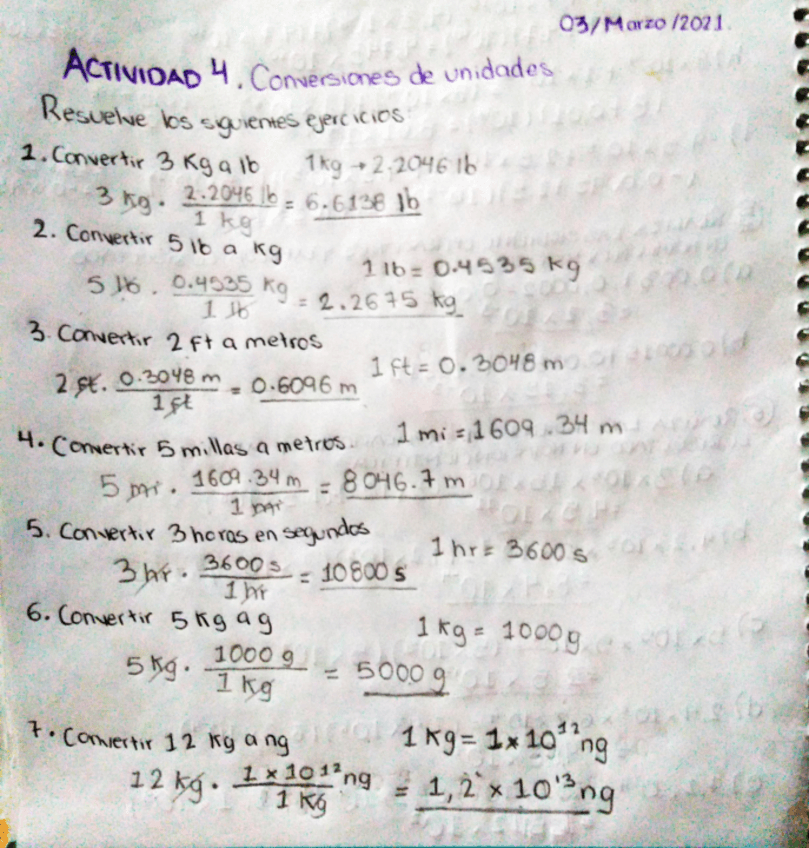 03/Marzo/2021.
ACTIVIDAD 4. Conversiones de unidades
Resuelve los siguientes ejercicios:
1. Convertir 3 Kg a lb 1kg → 2.2046 lb
3 kg · 2.2046 lb / 1 kg = 6.6138 lb
2. Convertir 5 lb a kg
1 lb = 0.4535 kg
5 lb · 0.4535 kg / 1 lb = 2.2675 kg
3. Convertir 2 ft a metros
1 ft = 0.3048 m
2 ft · 0.3048 m / 1 ft = 0.6096 m
4. Convertir 5 millas a metros. 1 mi = 1609.34 m
5 mi · 1609.34 m / 1 mi = 8046.7 m
5. Convertir 3 horas en segundos
1 hr = 3600 s
3 hr · 3600 s / 1 hr = 10800 s
6. Convertir 5 Kg a g
1 Kg = 1000 g
5 Kg · 1000 g / 1 Kg = 5000 g
7. Convertir 12 Kg a ng 1 Kg = 1x10¹² ng
12 kg · 1 x 10¹² ng / 1 Kg = 1,2 x 10¹³ ng